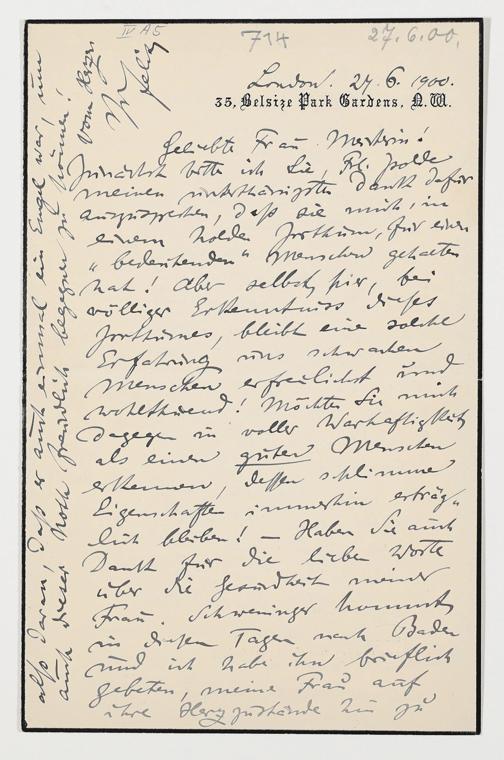 IV A5
714
27.6.00.
London. 27. 6. 1900.
35, Belsize Park Gardens, N.W.
Geliebte Frau Meisterin!
zunächst bitte ich Sie, Frl. Isolde
meinen unterthänigsten Dank dafür
auszusprechen, daß sie mich, im
einem holden Irrthum, für einen
„bedeutenden“ Menschen gehalten
hat! Aber selbst hier, bei
völliger Erkenntniss dieses
Irrthumes, bleibt eine solche
Erfahrung uns schwachen
Menschen erfreulichst und
wohlthuend! Möchten Sie mich
dagegen in voller Warhaftigkeit
als einen guten Menschen
erkennen, dessen schlimme
Eigenschaften immerhin erträg-
lich bleiben! — Haben Sie auch
Dank für die lieben Worte
über die Gesundheit meiner
Frau. Schweninger kommt
in diesen Tagen nach Baden
und ich habe ihn brieflich
gebeten, meine Frau auf
ihre Herzzustände hin zu
also daran, daß er auch einmal ein Engel war, um
auch dieser Rolle freundlich begegnen zu können!
Vom Herzen
Ihr
Felix